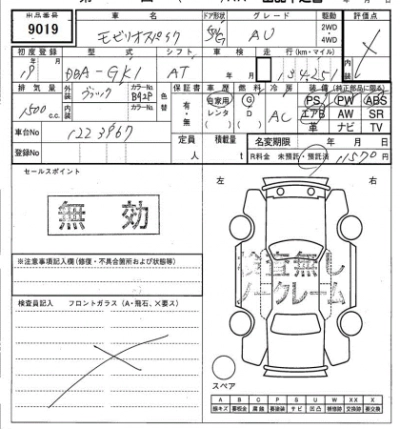 出品番号 車名 ドア形状 グレード 駆動 評価点
9019 モビリオスパイク 5D/G AU 2WD ・ 4WD
初度登録 型式 シフト 車検 走行(km・マイル)
19年 月 DBA-GK1 AT 年 月 134,251
内装
排気量 外装 ブラック カラーNo. B92P 色替 保証書 車歴 燃料 冷房 装備(純正部品に限る)
1500 c.c. 内装 カラーNo. 有・無 自家用 レンタ ( ) G D ( ) AC PS PW ABS
エアB AW SR
革 ナビ TV
車台No 1223967 定員 積載量 名変期限 年 月 日
登録No 人 t R料金 未預託・預託済 11570円
セールスポイント
無効
左 右
検査無し
ノークレーム
※注意事項記入欄(修復・不具合箇所および状態等)
検査員記入 フロントガラス(A・飛石、×要ス)
スペア
A B C P S U W XX X